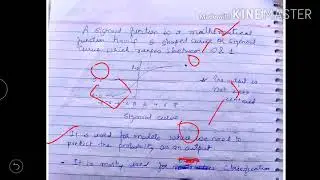 Made with KINEMASTER
A sigmoid function is a mathematical
function having s shaped curve or sigmoid
curve which ranges between 0 & 1
not
Sigmoid curve
It is used for models where we need to
predict the probability as an output.
It is mostly used for classification